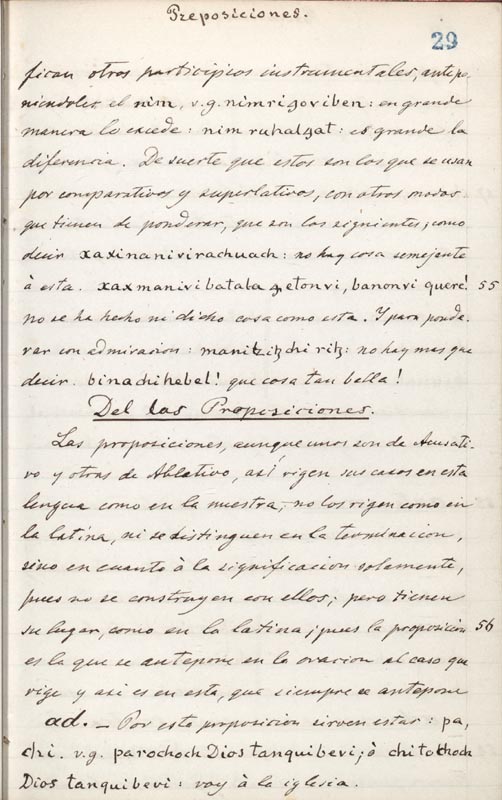 Preposiciones.
29
fican otros participios instrumentales, antepo-
niendoles el nim, v.g. nimrigoviben: en grande
manera lo excede: nim ruhalgat: es grande la
diferencia. De suerte que estos son los que se usan
por comparativos y superlativos, con otros modos
que tienen de ponderar, que son los siguientes; como
decir xaxinanivirachuach: no hay cosa semejante
à esta. xaxmanivibatala getonvi, banonvi queré! 55
no se ha hecho ni dicho cosa como esta. Y para ponde-
rar con admiracion: manitzitzchi ritz: no hay mas que
decir. binachihebel! que cosa tan bella!
Del las Proposiciones.
Las proposiciones, aunque unos son de Acusati-
vo y otras de Ablativo, así rigen sus casos en esta
lengua como en la nuestra, no los rigen como en
la latina, ni se distinguen en la terminacion,
sino en cuanto à la significacion solamente,
pues no se construyen con ellos; pero tienen
su lugar, como en la latina; pues la proposicion 56
es la que se antepone en la oracion al caso que
rige y asi es en esta, que siempre se antepone
ad. – Por esta proposicion sirven estas: pa,
chi. v.g. parochoch Dios tanquibevi; ò chitochoch
Dios tanquibevi: voy à la iglesia.